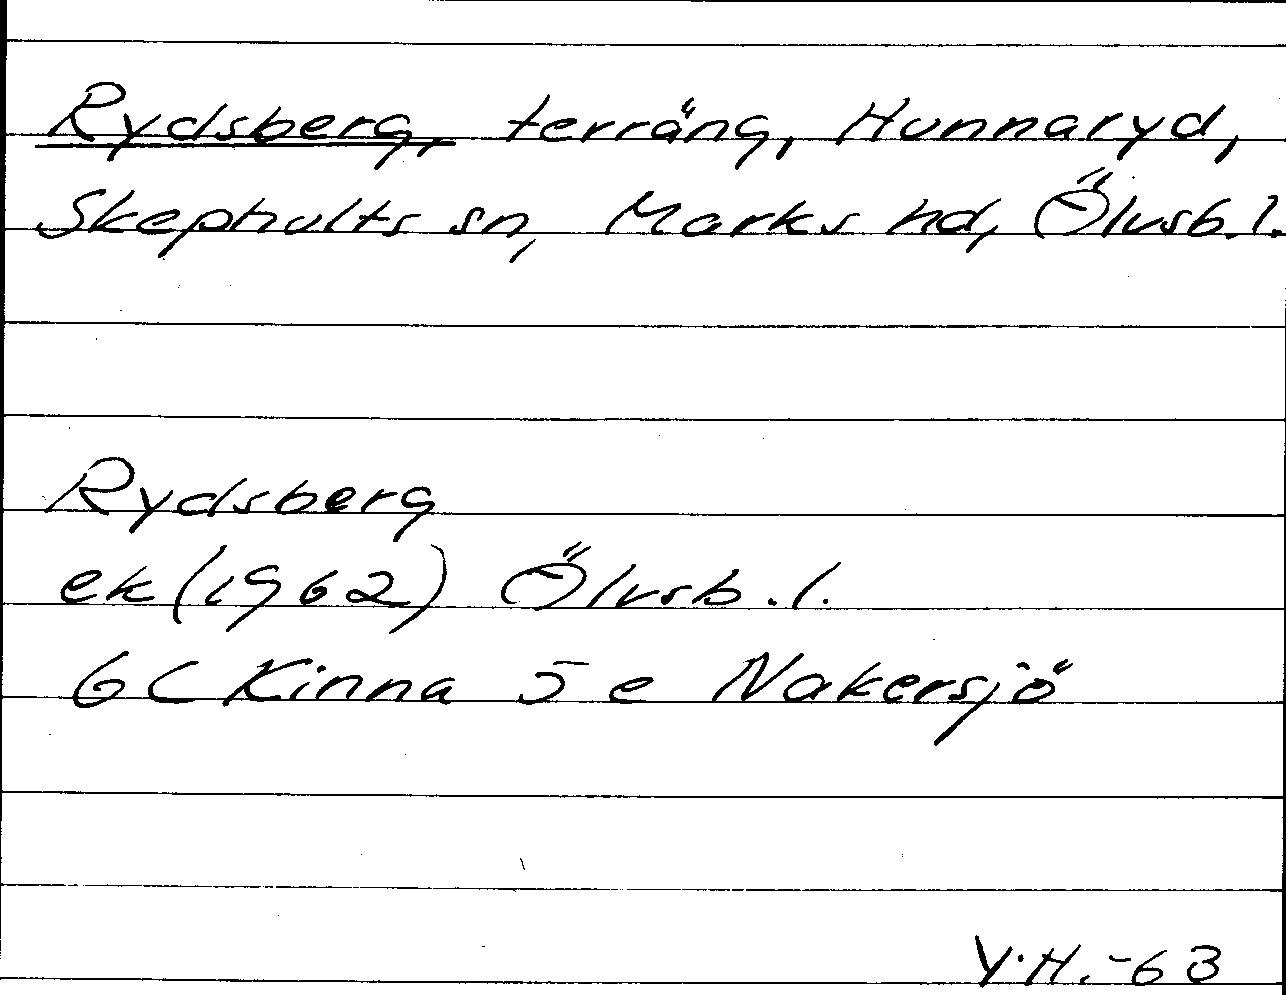 Rydsberg, terräng, Hunnaryd,
Skephults sn, Marks hd, Älvsb.l.
Rydsberg
ek (1962) Älvsb.l.
6C Kinna 5 e Nakersjö
Y.H.-63